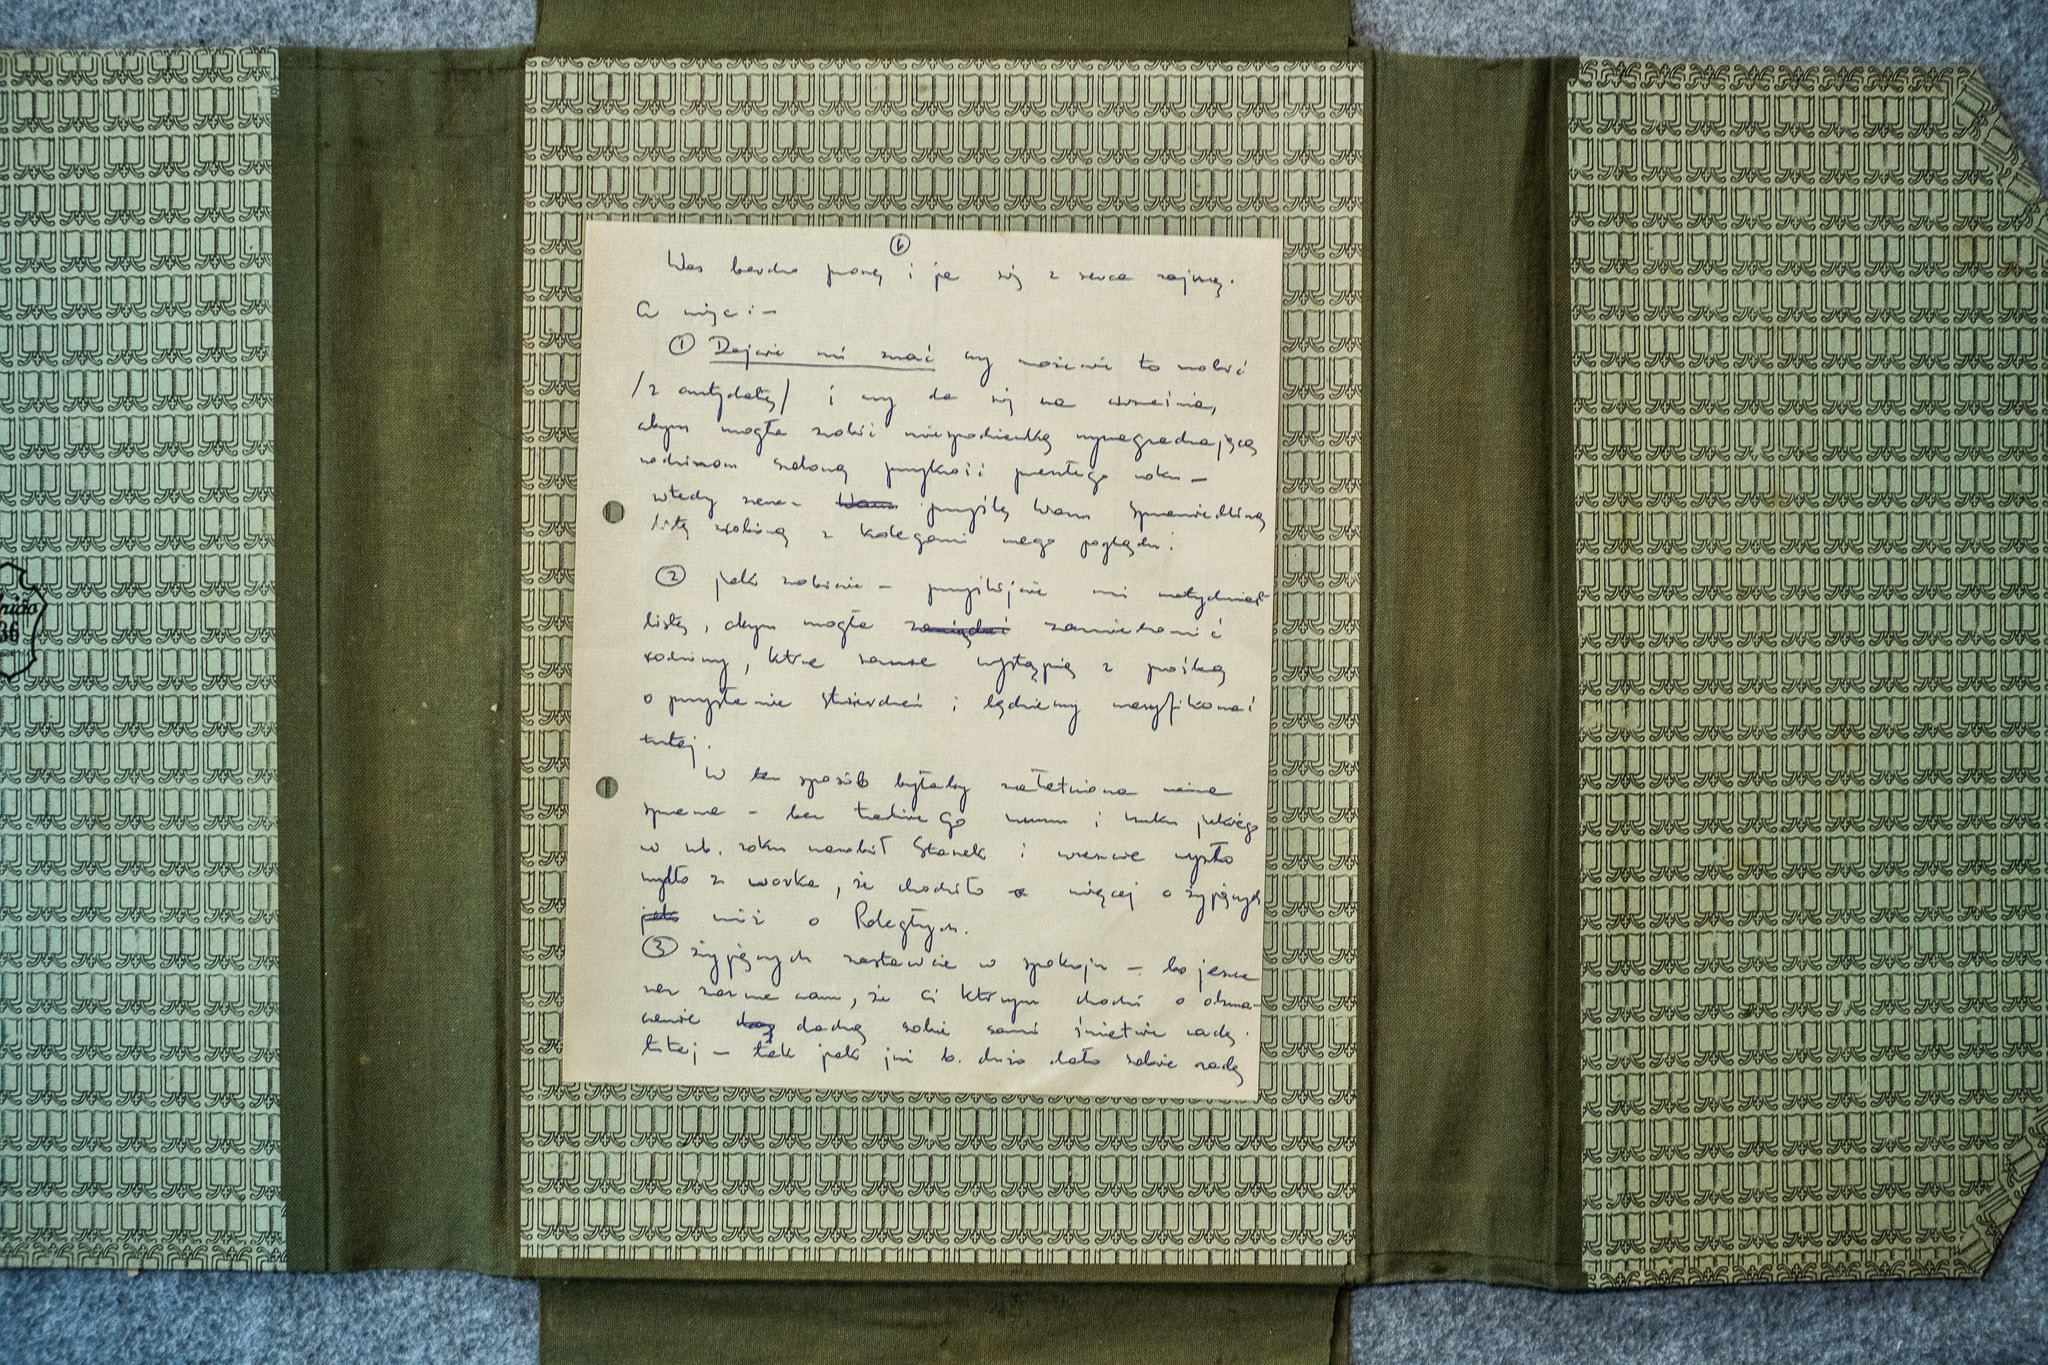 6
Was bardzo proszę i ja się z serca zajmę.
A więc: -
① Dajcie mi znać czy możecie to zrobić
/z antydatą/ i czy da się na września,
abym mogła zrobić niespodziankę wynagradzającą
rodzinom szaloną przykrość zeszłego roku -
wtedy zaraz Wam przyślę Wam sprawiedliwą
listę zrobioną z kolegami mego poglądu!
② jak zrobicie - przyślijcie mi natychmiast
listę, abym mogła zawiadomić
rodziny, które same wystąpią z prośbą
o przysłanie stwierdzeń i będziemy weryfikować
tutaj.
W ten sposób byłaby załatwiona nasza
sprawa - bez takiego szumu i huku jakiego
w ub. roku narobił Stanek i wreszcie wyszło
szydło z worka, że chodziło więcej o żyjących
jak niż o Poległych.
③ żyjących zostawcie w spokoju - bo jeszcze
raz wam, że ci którym chodzi o odzna-
czenie dadzą sobie sami świetnie radę
tutaj - tak jak już b. dużo dało sobie radę
36